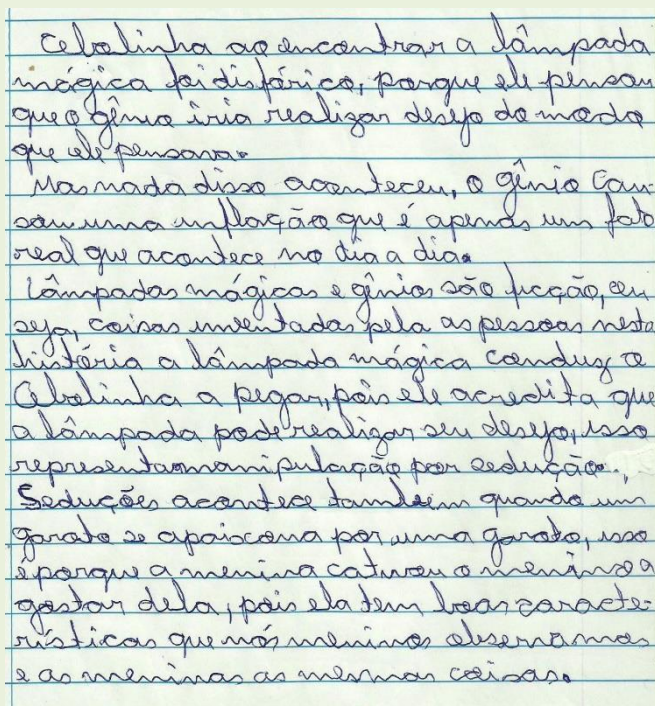 Cebolinha ao encontrar a lâmpada
mágica foi disfórico, porque ele pensou
que o gênio iria realizar desejo do modo
que ele pensava.
Mas nada disso aconteceu, o gênio cau-
sou uma inflação que é apenas um fato
real que acontece no dia a dia.
Lâmpadas mágicas e gênios são ficção, ou
seja, coisas inventadas pela as pessoas nesta
história a lâmpada mágica conduz o
Cebolinha a pegar, pois ele acredita que
a lâmpada pode realizar seu desejo, isso
representa manipulação por sedução.
Seduções acontece também quando um
garoto se apaixona por uma garota, isso
é porque a menina cativou o menino a
gostar dela, pois ela tem boas caracte-
rísticas que nós meninos observamos
e as meninas as mesmas coisas.